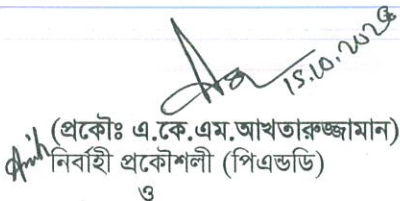 15.10.2025
(প্রকৌঃ এ.কে.এম.আখতারুজ্জামান)
নির্বাহী প্রকৌশলী (পিএন্ডডি)
ও